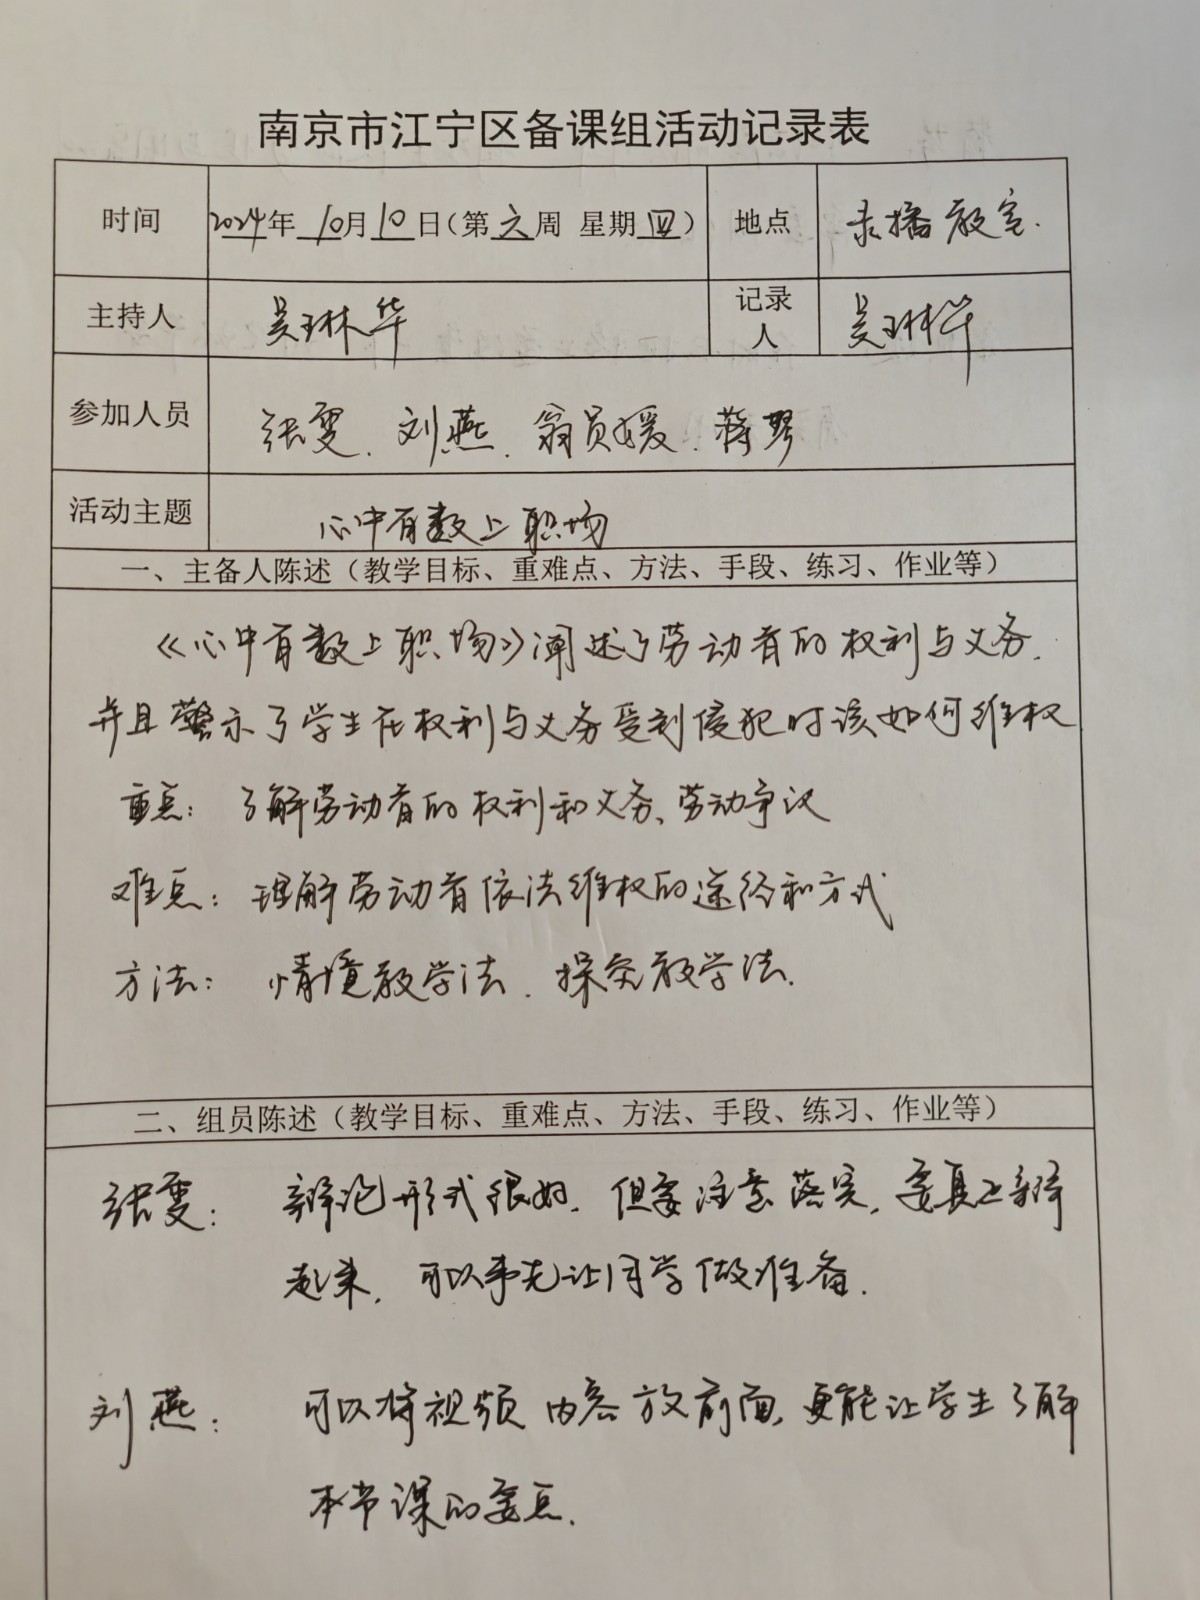 南京市江宁区备课组活动记录表
时间 2024年 10月10日(第六周 星期四) 地点 录播教室.
主持人 吴琳华 记录人 吴琳华
参加人员 张雯、刘燕、翁员媛、蒋琴
活动主题 心中有数上职场
一、主备人陈述（教学目标、重难点、方法、手段、练习、作业等）
《心中有数上职场》阐述了劳动者的权利与义务.
并且警示了学生在权利与义务受到侵犯时该如何维权
重点: 了解劳动者的权利和义务、劳动争议
难点: 理解劳动者依法维权的途径和方式
方法: 情境教学法、探究教学法.
二、组员陈述（教学目标、重难点、方法、手段、练习、作业等）
张雯: 辩论形式很好. 但要注意落实, 要真正辩
起来, 可以事先让同学做准备.
刘燕: 可以将视频内容放前面, 更能让学生了解
本节课的要点.